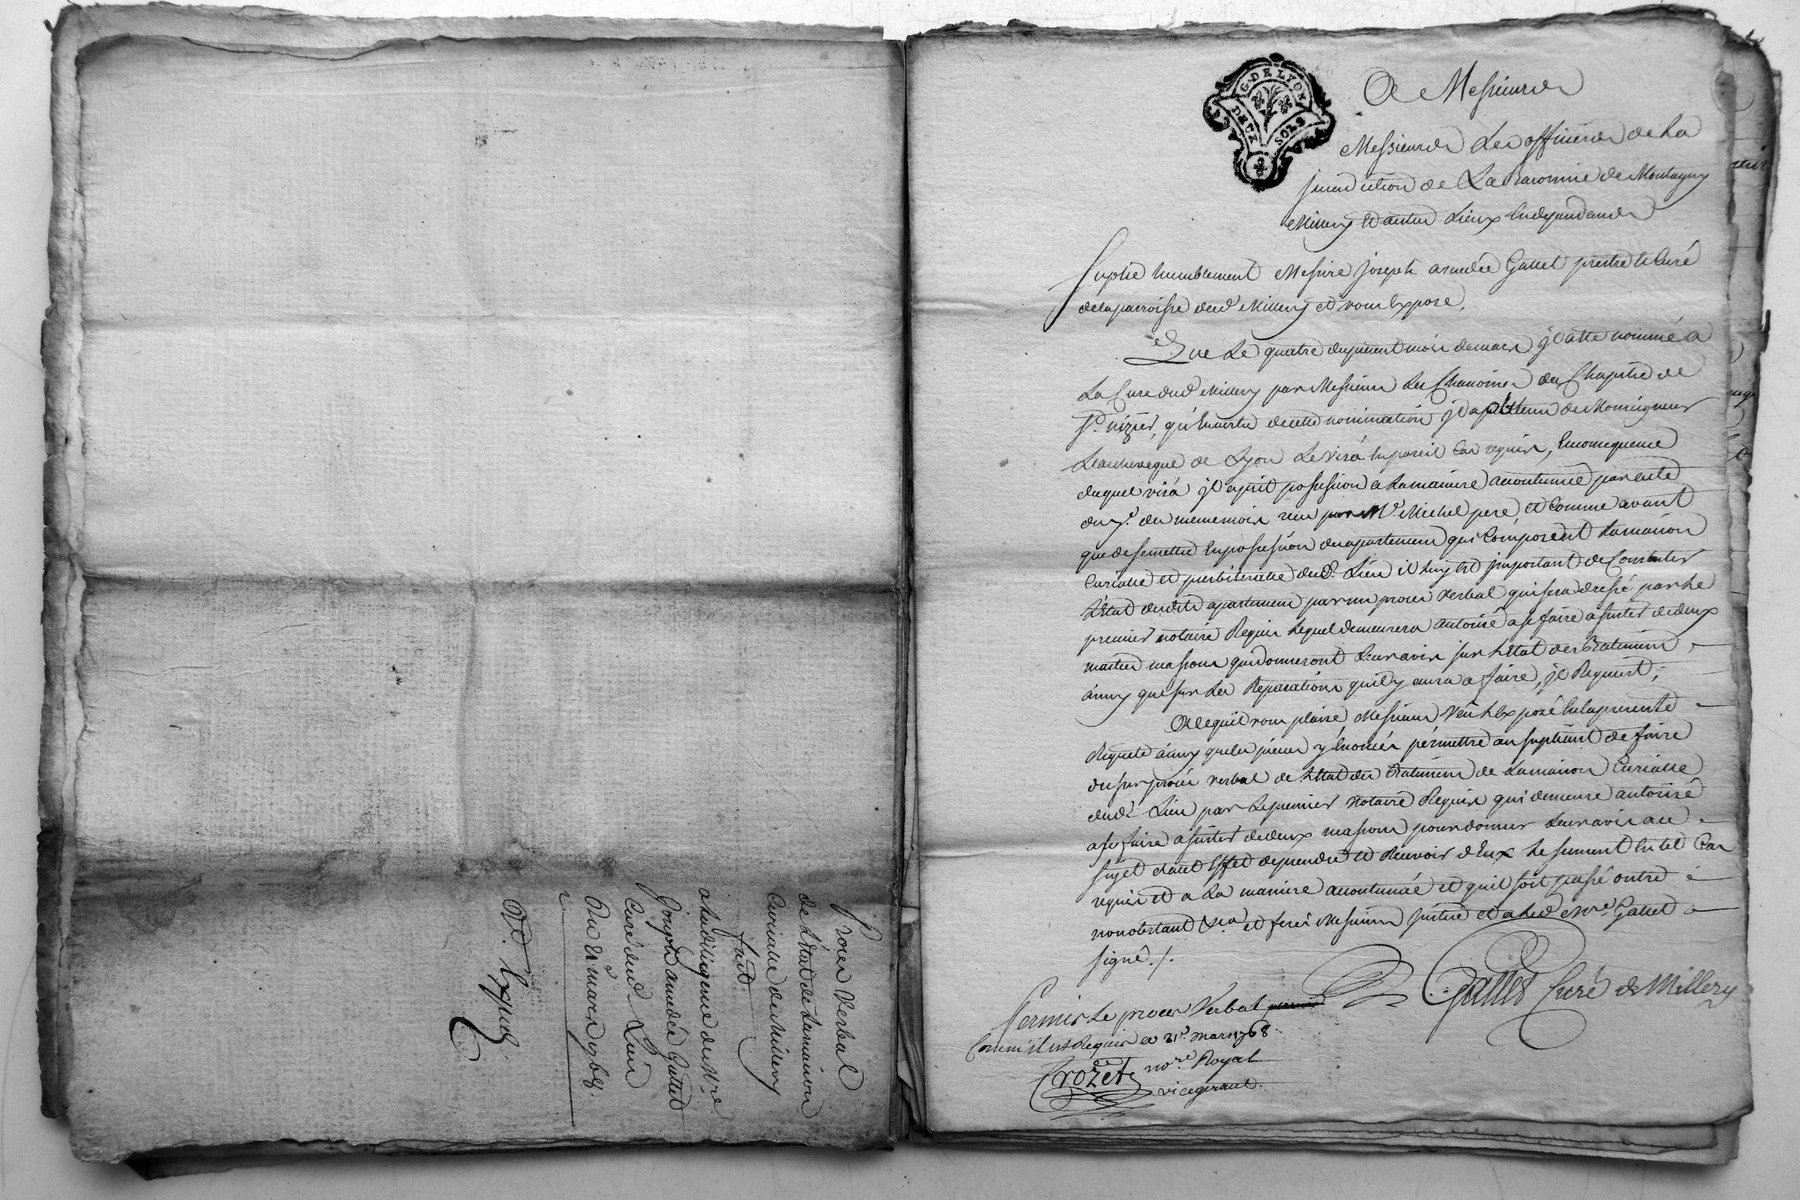 Procès Verbal
de L'Etat de La maison
Curialle de Millery
fait
a la diligence de Mre
Joseph amedée Gattet
Curé dud. Lieu
Du 21 mars 1768
Exped.
G. DE LYON
DEUX SOLS
A Messieurs
Messieurs Les officiers de La
jurisdiction de La Baronnie de Montagny
Millery et autres Lieux en dependans
Suplie humblement Messire Joseph amedée Gattet prestre et Curé
de la parroisse dud. Millery et vous Expose,
Que Le quatre du present mois de mars il a été nommé a
La Cure dud. Millery par Messieurs Les Chanoines du Chapitre de
St. nizier, qu'ensuitte de cette nomination il a obtenu de Monseigneur
L'archeveque de Lyon Le visa en pareil Cas requis, En consequence
duquel visa il a prit possession a La maniere accoutumée par acte
du du meme mois reçu par Me. Michel pere, et Comme avant
que de se mettre En possession des apartemens qui Composent La maison
Curialle et presbiteralle dud. Lieu il luy est important de Constater
L'Etat desdits apartemens par un procès verbal qui sera dressé par Le
premier notaire Requis Lequel demeurera autorisé a se faire assister de deux
maitres massons qui donneront Leur avis sur L'Etat des Batimens
ainsy que sur Les Reparations qu'il y aura a faire, il Requiert,
A ce qu'il vous plaise Messieurs Veu L'Exposé En la presente
Requete ainsy que les pieces y Enoncées permettre au supliant de faire
dresser procès verbal de L'Etat des Batimens de La maison Curialle
dud. Lieu par Le premier Notaire Requis qui demeure autorisé
a se faire assister de deux massons pour donner Leur avis au
sujet dud. Effet de prendre et Recevoir d'Eux Le serment En tel Cas
requis et a La maniere accoutumée et qu'il soit passé outre
nonobstant &ca. et ferés Messieurs justice et a Led. Mre. Gattet
signé./.
Gattet Curé de Millery
Permis Le procès Verbal
Comm'il est Requis ce 21e. mars 1768
Crozet nore. Royal
vicegerant